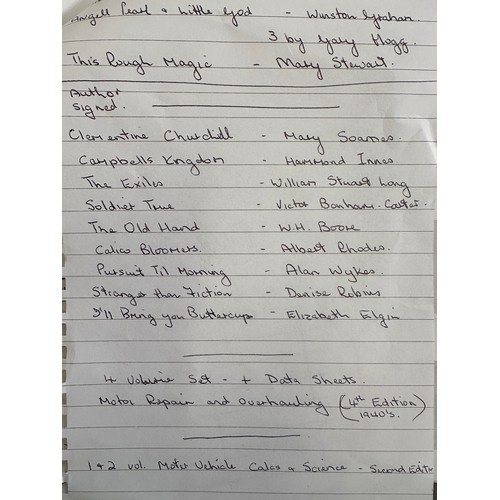 Angell Pearl & Little God - Winston Graham.
3 by Gary Hogg.
This Rough Magic - Mary Stewart.
Author
Signed.
Clementine Churchill - Mary Soames.
Campbells Kngdom - Hammond Innes.
The Exiles - William Stuart Long
Soldier True - Victor Bonham-Carter.
The Old Hand - W.H. Boore
Calico Bloomers. - Albert Rhodes.
Pursuit Til Morning - Alan Wykes.
Stranger than Fiction - Denise Robins
I'll Bring you Buttercups - Elizabeth Elgin
4 Volume Set - + Data Sheets.
Motor Repair and Overhauling (4th Edition)
1940's.
1 & 2 vol. Motor Vehicle Calcs & Science - Second Editn